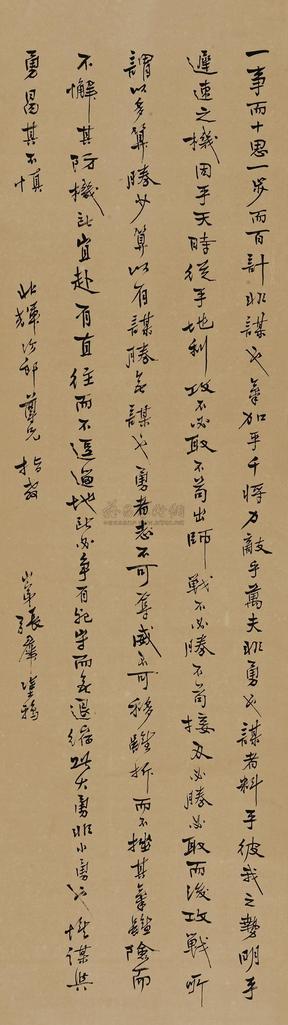 一事而十思一步而百計非謀也氣加乎千將力敵乎萬夫非勇也謀者料乎彼我之勢明乎
遲速之機因乎天時從乎地利攻不必取不苟出師戰不必勝不苟接刃必勝必取而後攻戰所
謂以多算勝少算以有謀勝無謀也勇者志不可奪威不可移雖折而不挫其氣雖險而
不懈其防機所宜赴有直往而不逗遛地所必爭有死守而無退縮此大勇非小勇也惟謀與
勇曷其不慎
尊兄指教
弟張群塗鴉